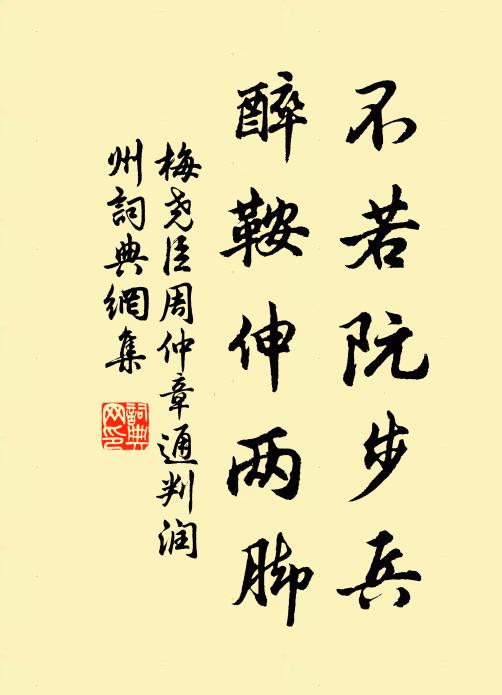 不若阮步兵
醉鞍伸两脚
梅尧臣周仲章通判润
州詞典網集
詞典
网印